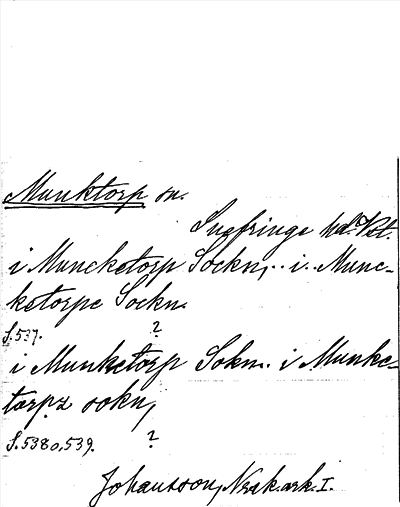 Munktorp sn.
Snefringe hd. Vst.
i Muncketorp Sockn,.. i. Munc-
ketorpe Sockn.
S.537. ?
i Munketorp Sokn.. i Munke-
torpz sokn,
S.538 o, 539. ?
Johansson, Nrak.ark. I.